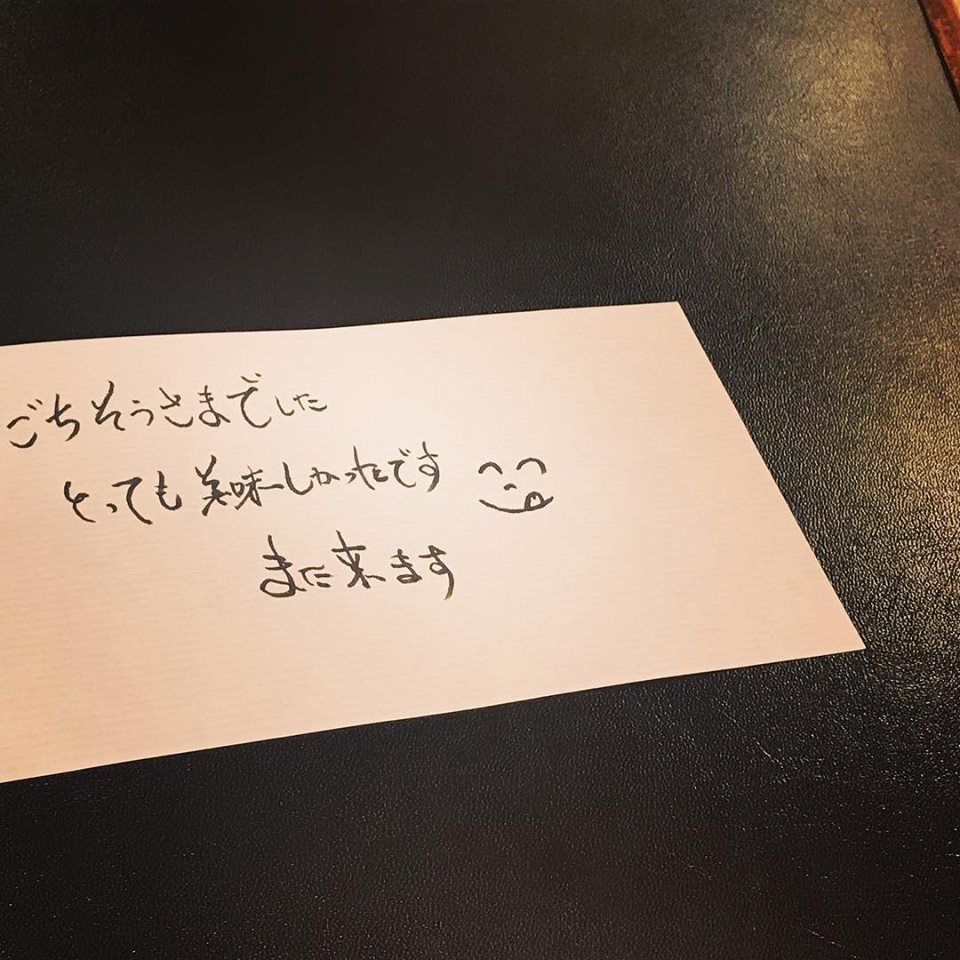 ごちそうさまでした
とっても美味しかったです
また来ます